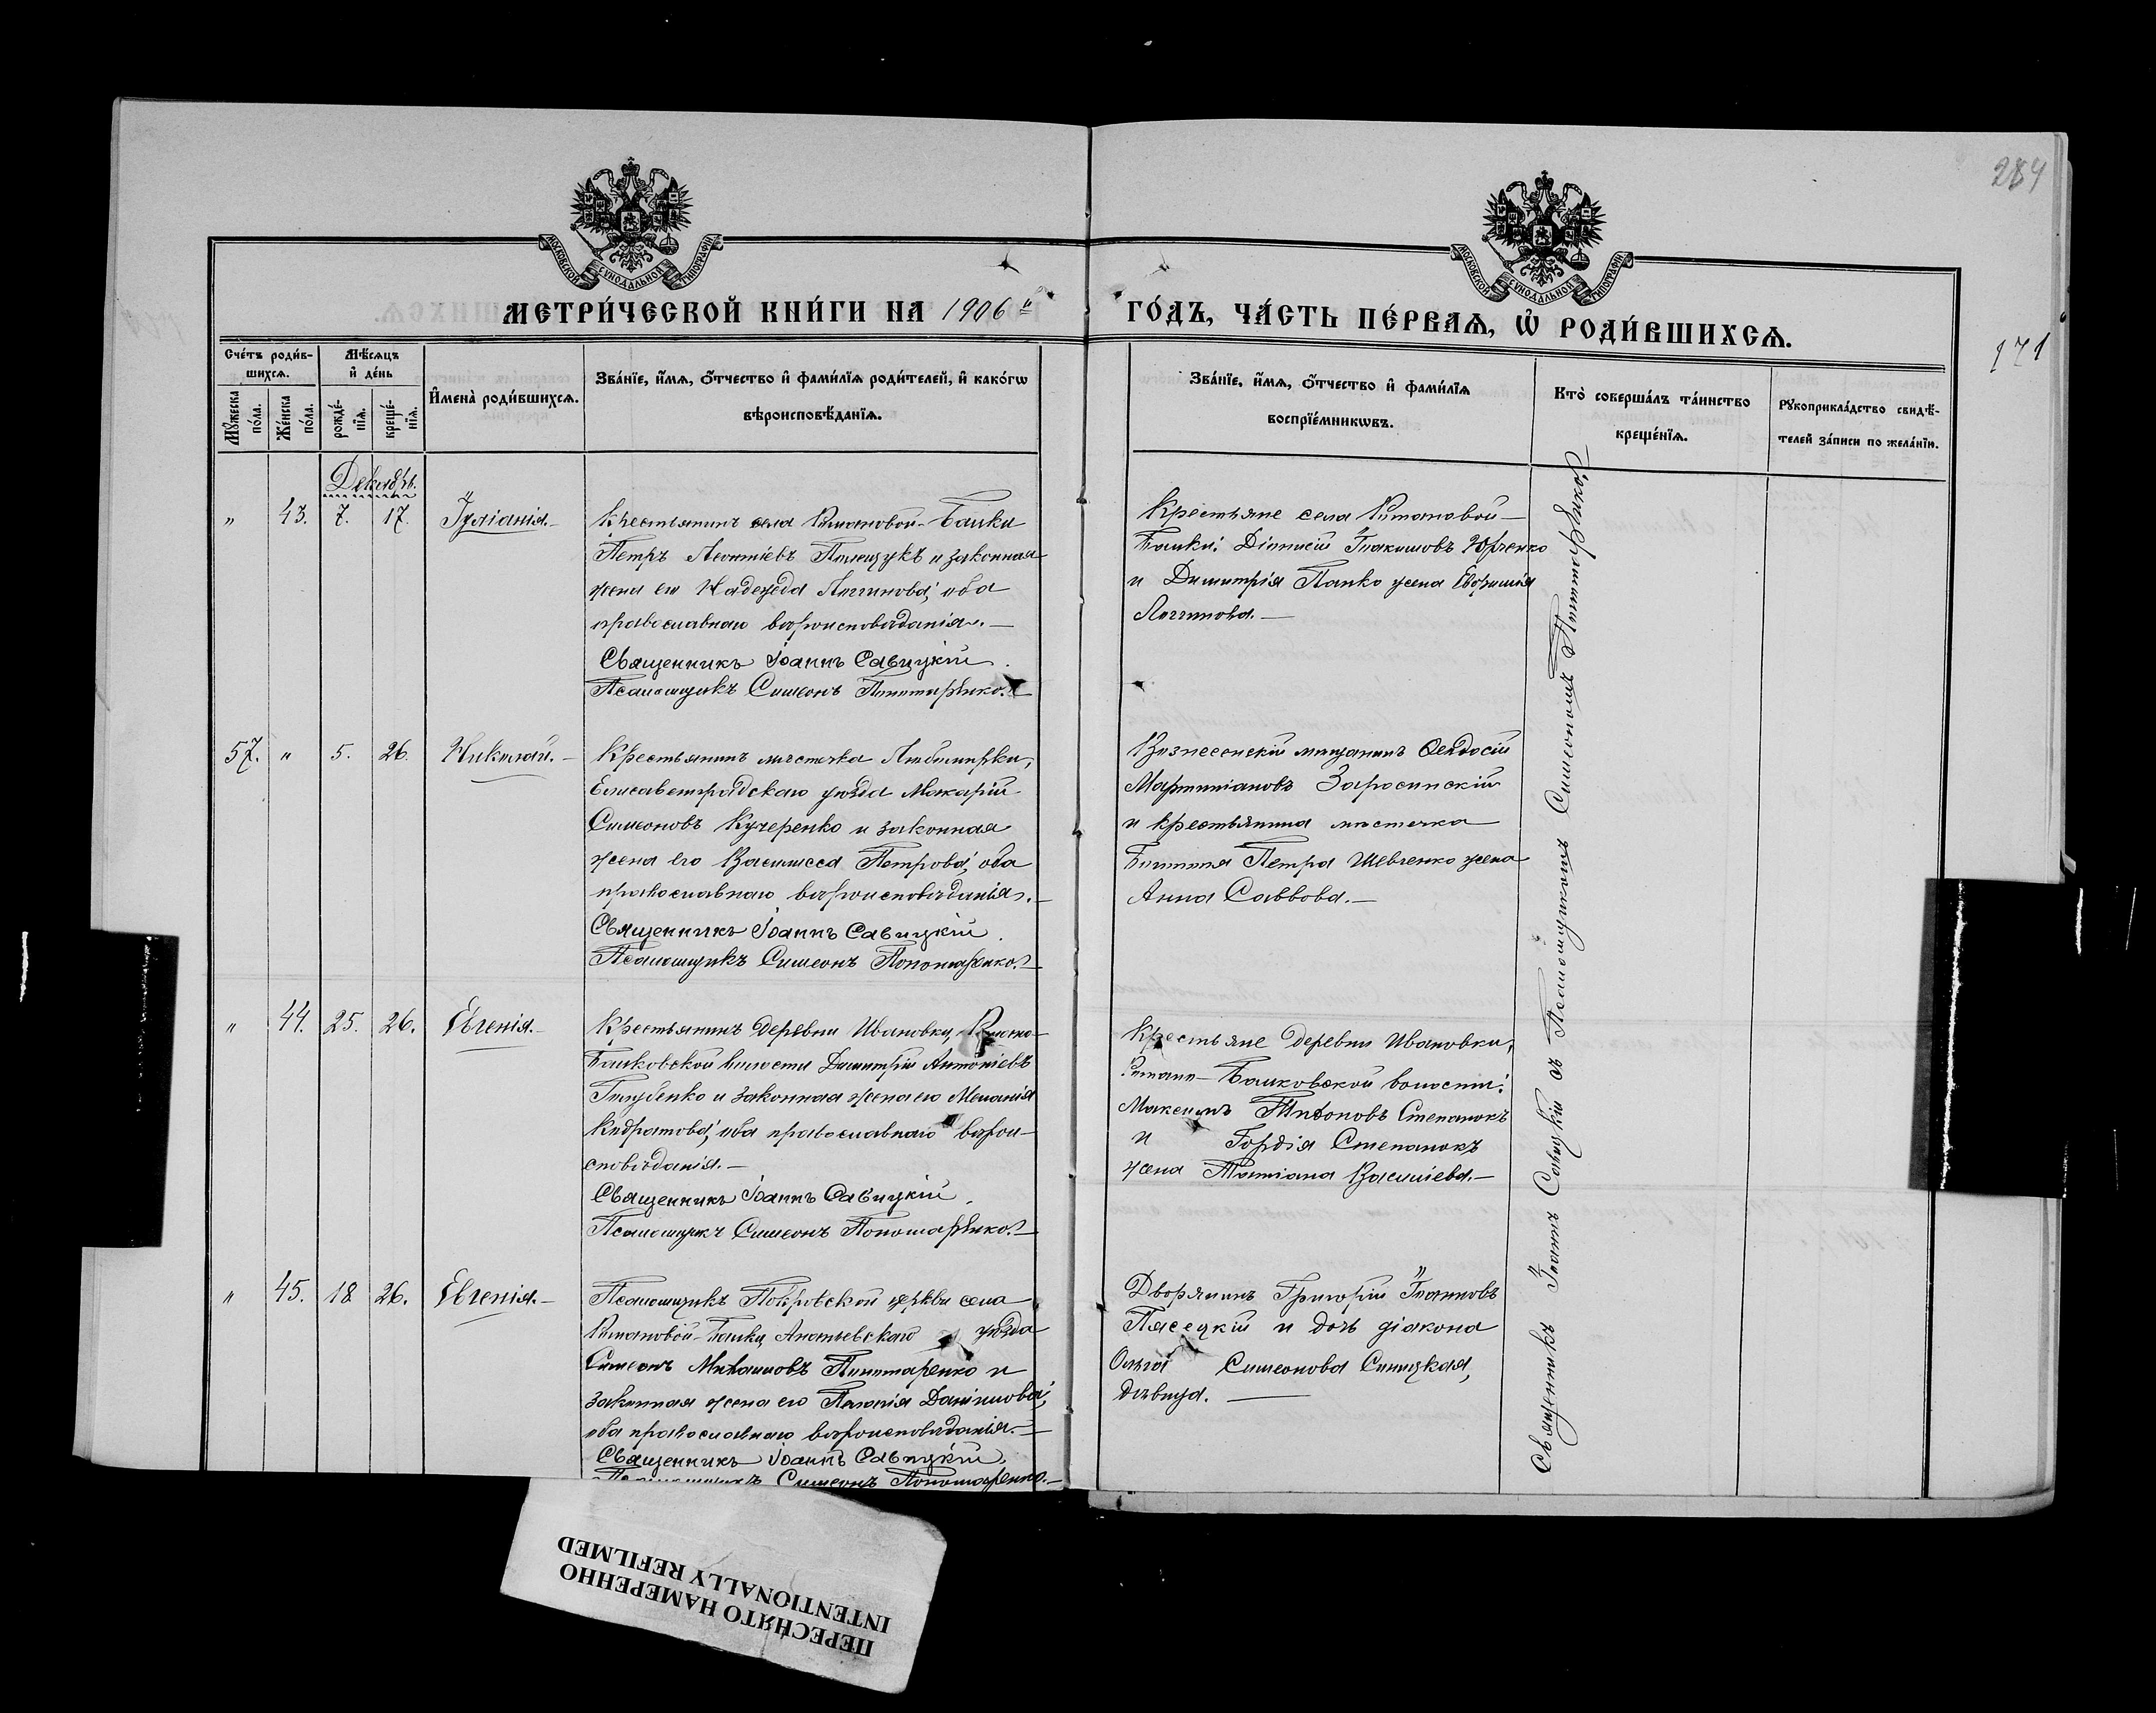 284
171
МОСКОВСКОЙ СУНОДАЛЬНОЙ ТИПОГРАФІИ
МОСКОВСКОЙ СУНОДАЛЬНОЙ ТИПОГРАФІИ
МЕТРИ́ЧЕСКОЙ КНИ́ГИ НА 1906й
ГО́ДЪ, ЧА́СТЬ ПЕ́РВАѦ, Ѡ҆ РОДИ́ВШИХСѦ.
Сче́тъ роди́в-
шихсѧ.
Мѣ́сѧцъ
и҆ де́нь
Мꙋ́жеска по́ла.
Же́нска по́ла.
рожде́-нїѧ.
креще́-нїѧ.
И҆мена̀ роди́вшихсѧ.
Зва́нїе, и҆́мѧ, ѻ҆́тчество и҆ фами́лїѧ роди́телей, и҆ како́гѡ
вѣроисповѣ́данїѧ.
Зва́нїе, и҆́мѧ, ѻ҆́тчество и҆ фами́лїѧ
воспрїе́мникѡвъ.
Кто̀ соверша́лъ та́инство
креще́нїѧ.
Рꙋкоприкла́дство свидѣ́-
телей за́писи по жела́нїю.
Декабрь.
" 43. 7. 17. Іуліанія.
Крестьянинъ села Романовой-Балки
Петръ Леонтіевъ Полещукъ и законная
жена его Надежда Логгинова, оба
православнаго вѣроисповѣданія.
Священникъ Іоаннъ Савицкій.
Псаломщикъ Симеонъ Пономаренко.
Крестьяне села Романовой-
Балки: Діонисій Іоакимовъ Юрченко
и Димитрія Панко жена Евфимія
Логгинова.
57. " 5. 26. Николай.
Крестьянинъ мѣстечка Любомирки,
Елисаветградскаго уѣзда Макарій
Симеоновъ Кучеренко и законная
жена его Василисса Петрова, оба
православнаго вѣроисповѣданія.
Священникъ Іоаннъ Савицкій.
Псаломщикъ Симеонъ Пономаренко.
Вознесенскій мѣщанинъ Ѳеодосій
Мартиніановъ
и крестьянина мѣстечка
Петра Шевченко жена
Анна Саввова.
" 44. 25. 26. Евгенія.
Крестьянинъ деревни Ивановки, Романо-
Балковской волости Димитрій Антоніевъ
Голубенко и законная жена его Меланія
Кодратова, оба православнаго вѣрои-
сповѣданія.
Священникъ Іоаннъ Савицкій.
Псаломщикъ Симеонъ Пономаренко.
Крестьяне деревни Ивановки,
Романо-Балковской волости:
Максимъ Степанокъ
и Гордія Степанокъ
жена Татіана Василіева.
" 45. 18 26. Евгенія.
Псаломщикъ Покровской церкви села
Романовой-Балки, Ананьевскаго уѣзда
Симеонъ Михаиловъ Пономаренко и
законная жена его Пелагія Даніилова,
оба православнаго вѣроисповѣданія.
Священникъ Іоаннъ Савицкій.
Псаломщикъ Симеонъ Пономаренко.
Дворянинъ Григорій Іоанновъ
Пясецкій и дочь діакона
Ольга Симеонова Синицкая,
дѣвица.
Священникъ Іоаннъ Савицкій съ Псаломщикомъ Симеономъ Пономаренко.
ПЕРЕСНЯТО НАМЕРЕННО
INTENTIONALLY REFILMED